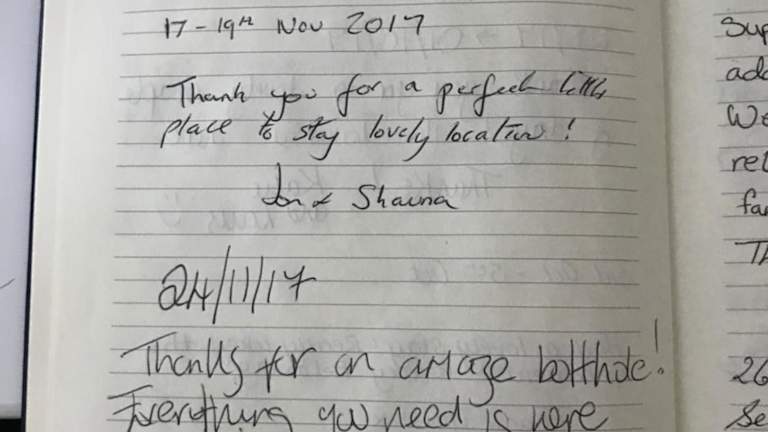 17-19th Nov 2017
Thank you for a perfect little
place to stay lovely location!
Jon & Shauna
24/11/17
Thanks for an amaze bolthole!
Everything you need is here
Sup
add
We
rel
fa
Th
26
Se